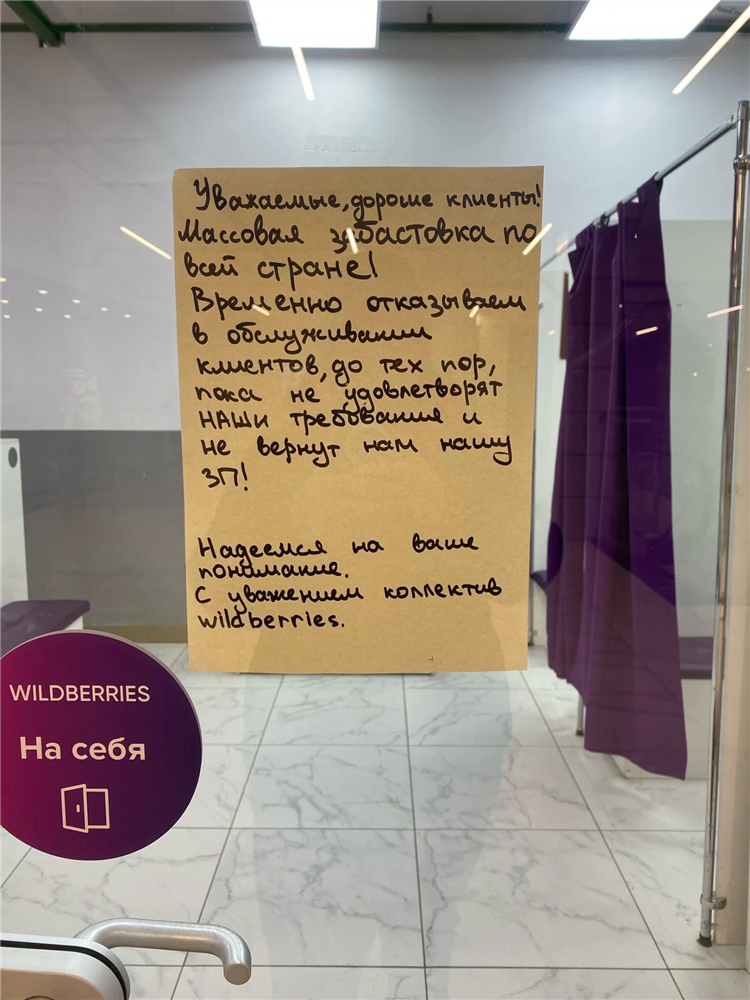 Уважаемые, дорогие клиенты!
Массовая забастовка по
всей стране!
Временно отказываем
в обслуживании
клиентов, до тех пор,
пока не удовлетворят
НАШИ требования и
не вернут нам нашу
ЗП!
Надеемся на ваше
понимание.
С уважением коллектив
wildberries.
WILDBERRIES
На себя